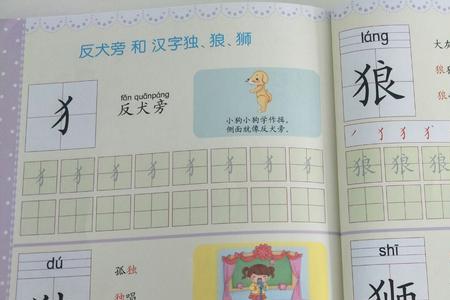 反犬旁 和 汉字独、狼、狮
犭
fǎn quǎnpáng
反犬旁
小狗小狗学作揖。
侧面就像反犬旁。
犭 犭 犭 犭 犭 犭 犭 犭
dú
孤独
独唱
láng
狼
狼 狼 狼
shī
狮